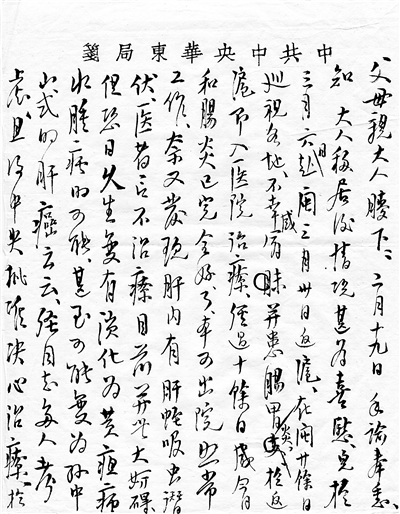 中共中央華東局箋
父母親大人膝下：二月十九日手諭奉悉，
知大人移居後情況甚為喜慰。兒於
三月六日赴閩三月卅日返滬，在閩廿餘日
巡視各地，不幸感冒并患腸胃炎，於返
滬即入医院治療，經過十餘日感冒
和腸炎已完全好了，本可出院照常
工作，奈又發現肝内有肝蛭吸虫潛
伏，医者言不治療目前并無大妨礙
但恐日久生變有演化為黃疸病
水腫病的可能，甚至可能變為孙中
山式的肝癌云云，經同志多人考
慮，且得中央批准決心治療。於